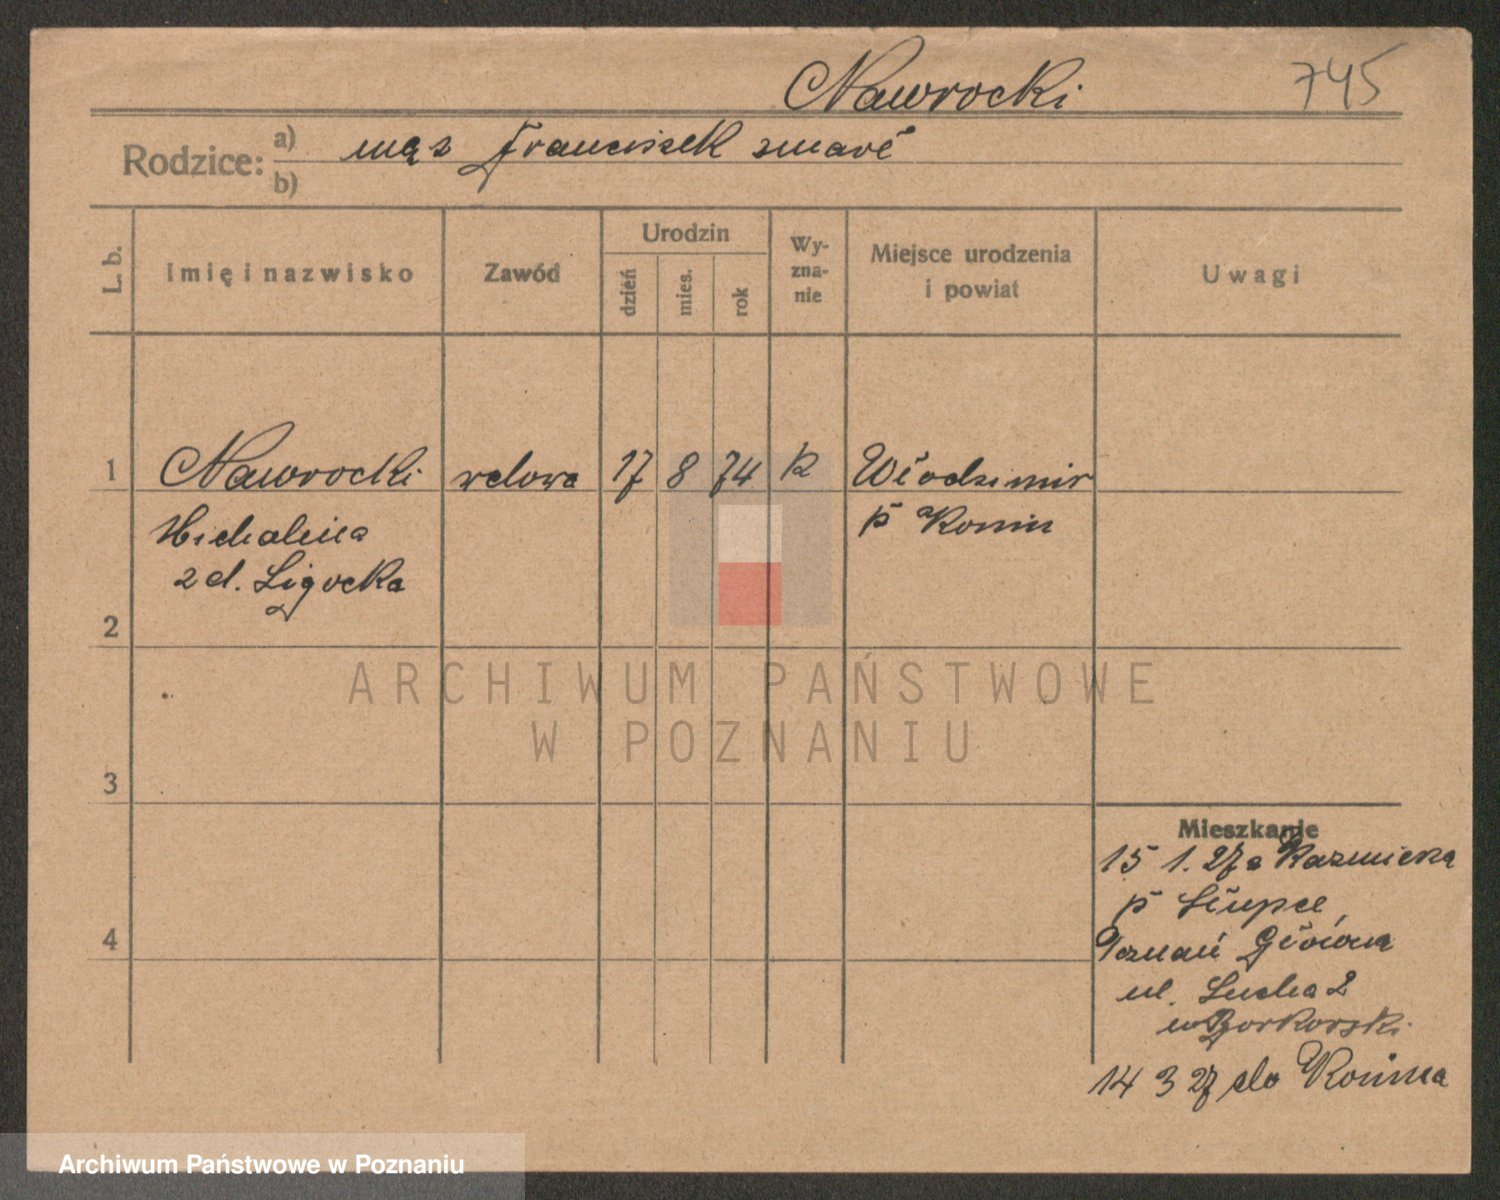 Nawrocki 745
Rodzice: a) mąż Franciszek zmarł
b)
L. b. Imię i nazwisko Zawód Urodzin dzień mies. rok Wy-zna-nie Miejsce urodzenia i powiat Uwagi
1 Nawrocki wdowa 17 8 74 K Włodzimir
Michalina p Konin
zd. Ligocka
2
ARCHIWUM PAŃSTWOWE
W POZNANIU
3
Mieszkanie
15 1. 27 z Kazmierza
p Słupce
4
Poznań Główna
ul. Sucha 2
14 3 27 do Konina
Archiwum Państwowe w Poznaniu